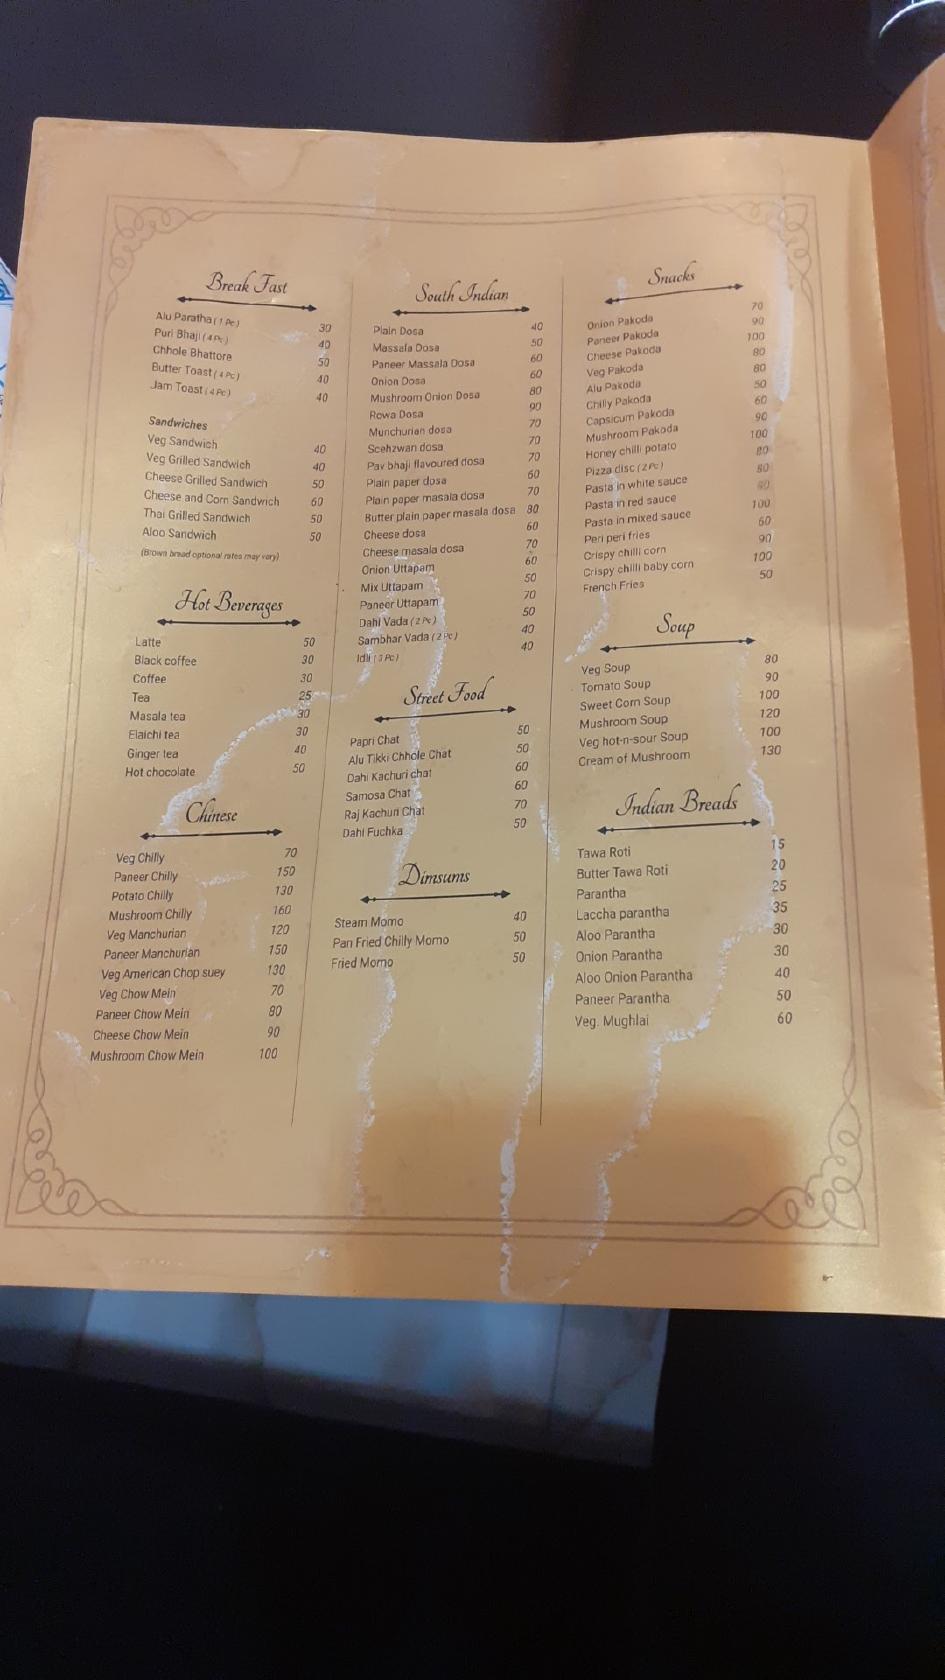 Break Fast
Alu Paratha (1 Pc) 30
Puri Bhaji (4 Pc) 40
Chhole Bhattore 50
Butter Toast (4 Pc) 40
Jam Toast (4 Pc) 40
Sandwiches
Veg Sandwich 40
Veg Grilled Sandwich 40
Cheese Grilled Sandwich 50
Cheese and Corn Sandwich 60
Thai Grilled Sandwich 50
Aloo Sandwich 50
(Brown bread optional rates may vary)
Hot Beverages
Latte 50
Black coffee 30
Coffee 30
Tea 25
Masala tea 30
Elaichi tea 30
Ginger tea 40
Hot chocolate 50
Chinese
Veg Chilly 70
Paneer Chilly 150
Potato Chilly 130
Mushroom Chilly 160
Veg Manchurian 120
Paneer Manchurian 150
Veg American Chop suey 130
Veg Chow Mein 70
Paneer Chow Mein 80
Cheese Chow Mein 90
Mushroom Chow Mein 100
South Indian
Plain Dosa 40
Massala Dosa 50
Paneer Massala Dosa 60
Onion Dosa 60
Mushroom Onion Dosa 80
Rowa Dosa 90
Munchurian dosa 70
Scehzwan dosa 70
Pav bhaji flavoured dosa 70
Plain paper dosa 60
Plain paper masala dosa 70
Butter plain paper masala dosa 80
Cheese dosa 60
Cheese masala dosa 70
Onion Uttapam 60
Mix Uttapam 50
Paneer Uttapam 70
Dahi Vada (2 Pc) 50
Sambhar Vada (2 Pc) 40
Idli (3 Pc) 40
Street Food
Papri Chat 50
Alu Tikki Chhole Chat 50
Dahi Kachuri chat 60
Samosa Chat 60
Raj Kachuri Chat 70
Dahi Fuchka 50
Dimsums
Steam Momo 40
Pan Fried Chilly Momo 50
Fried Momo 50
Snacks
Onion Pakoda 70
Paneer Pakoda 90
Cheese Pakoda 100
Veg Pakoda 80
Alu Pakoda 80
Chilly Pakoda 50
Capsicum Pakoda 60
Mushroom Pakoda 90
Honey chilli potato 100
Pizza disc (2 Pc) 80
Pasta in white sauce 80
Pasta in red sauce 90
Pasta in mixed sauce 100
Peri peri fries 60
Crispy chilli corn 90
Crispy chilli baby corn 100
French Fries 50
Soup
Veg Soup 80
Tomato Soup 90
Sweet Corn Soup 100
Mushroom Soup 120
Veg hot-n-sour Soup 100
Cream of Mushroom 130
Indian Breads
Tawa Roti 15
Butter Tawa Roti 20
Parantha 25
Laccha parantha 35
Aloo Parantha 30
Onion Parantha 30
Aloo Onion Parantha 40
Paneer Parantha 50
Veg. Mughlai 60